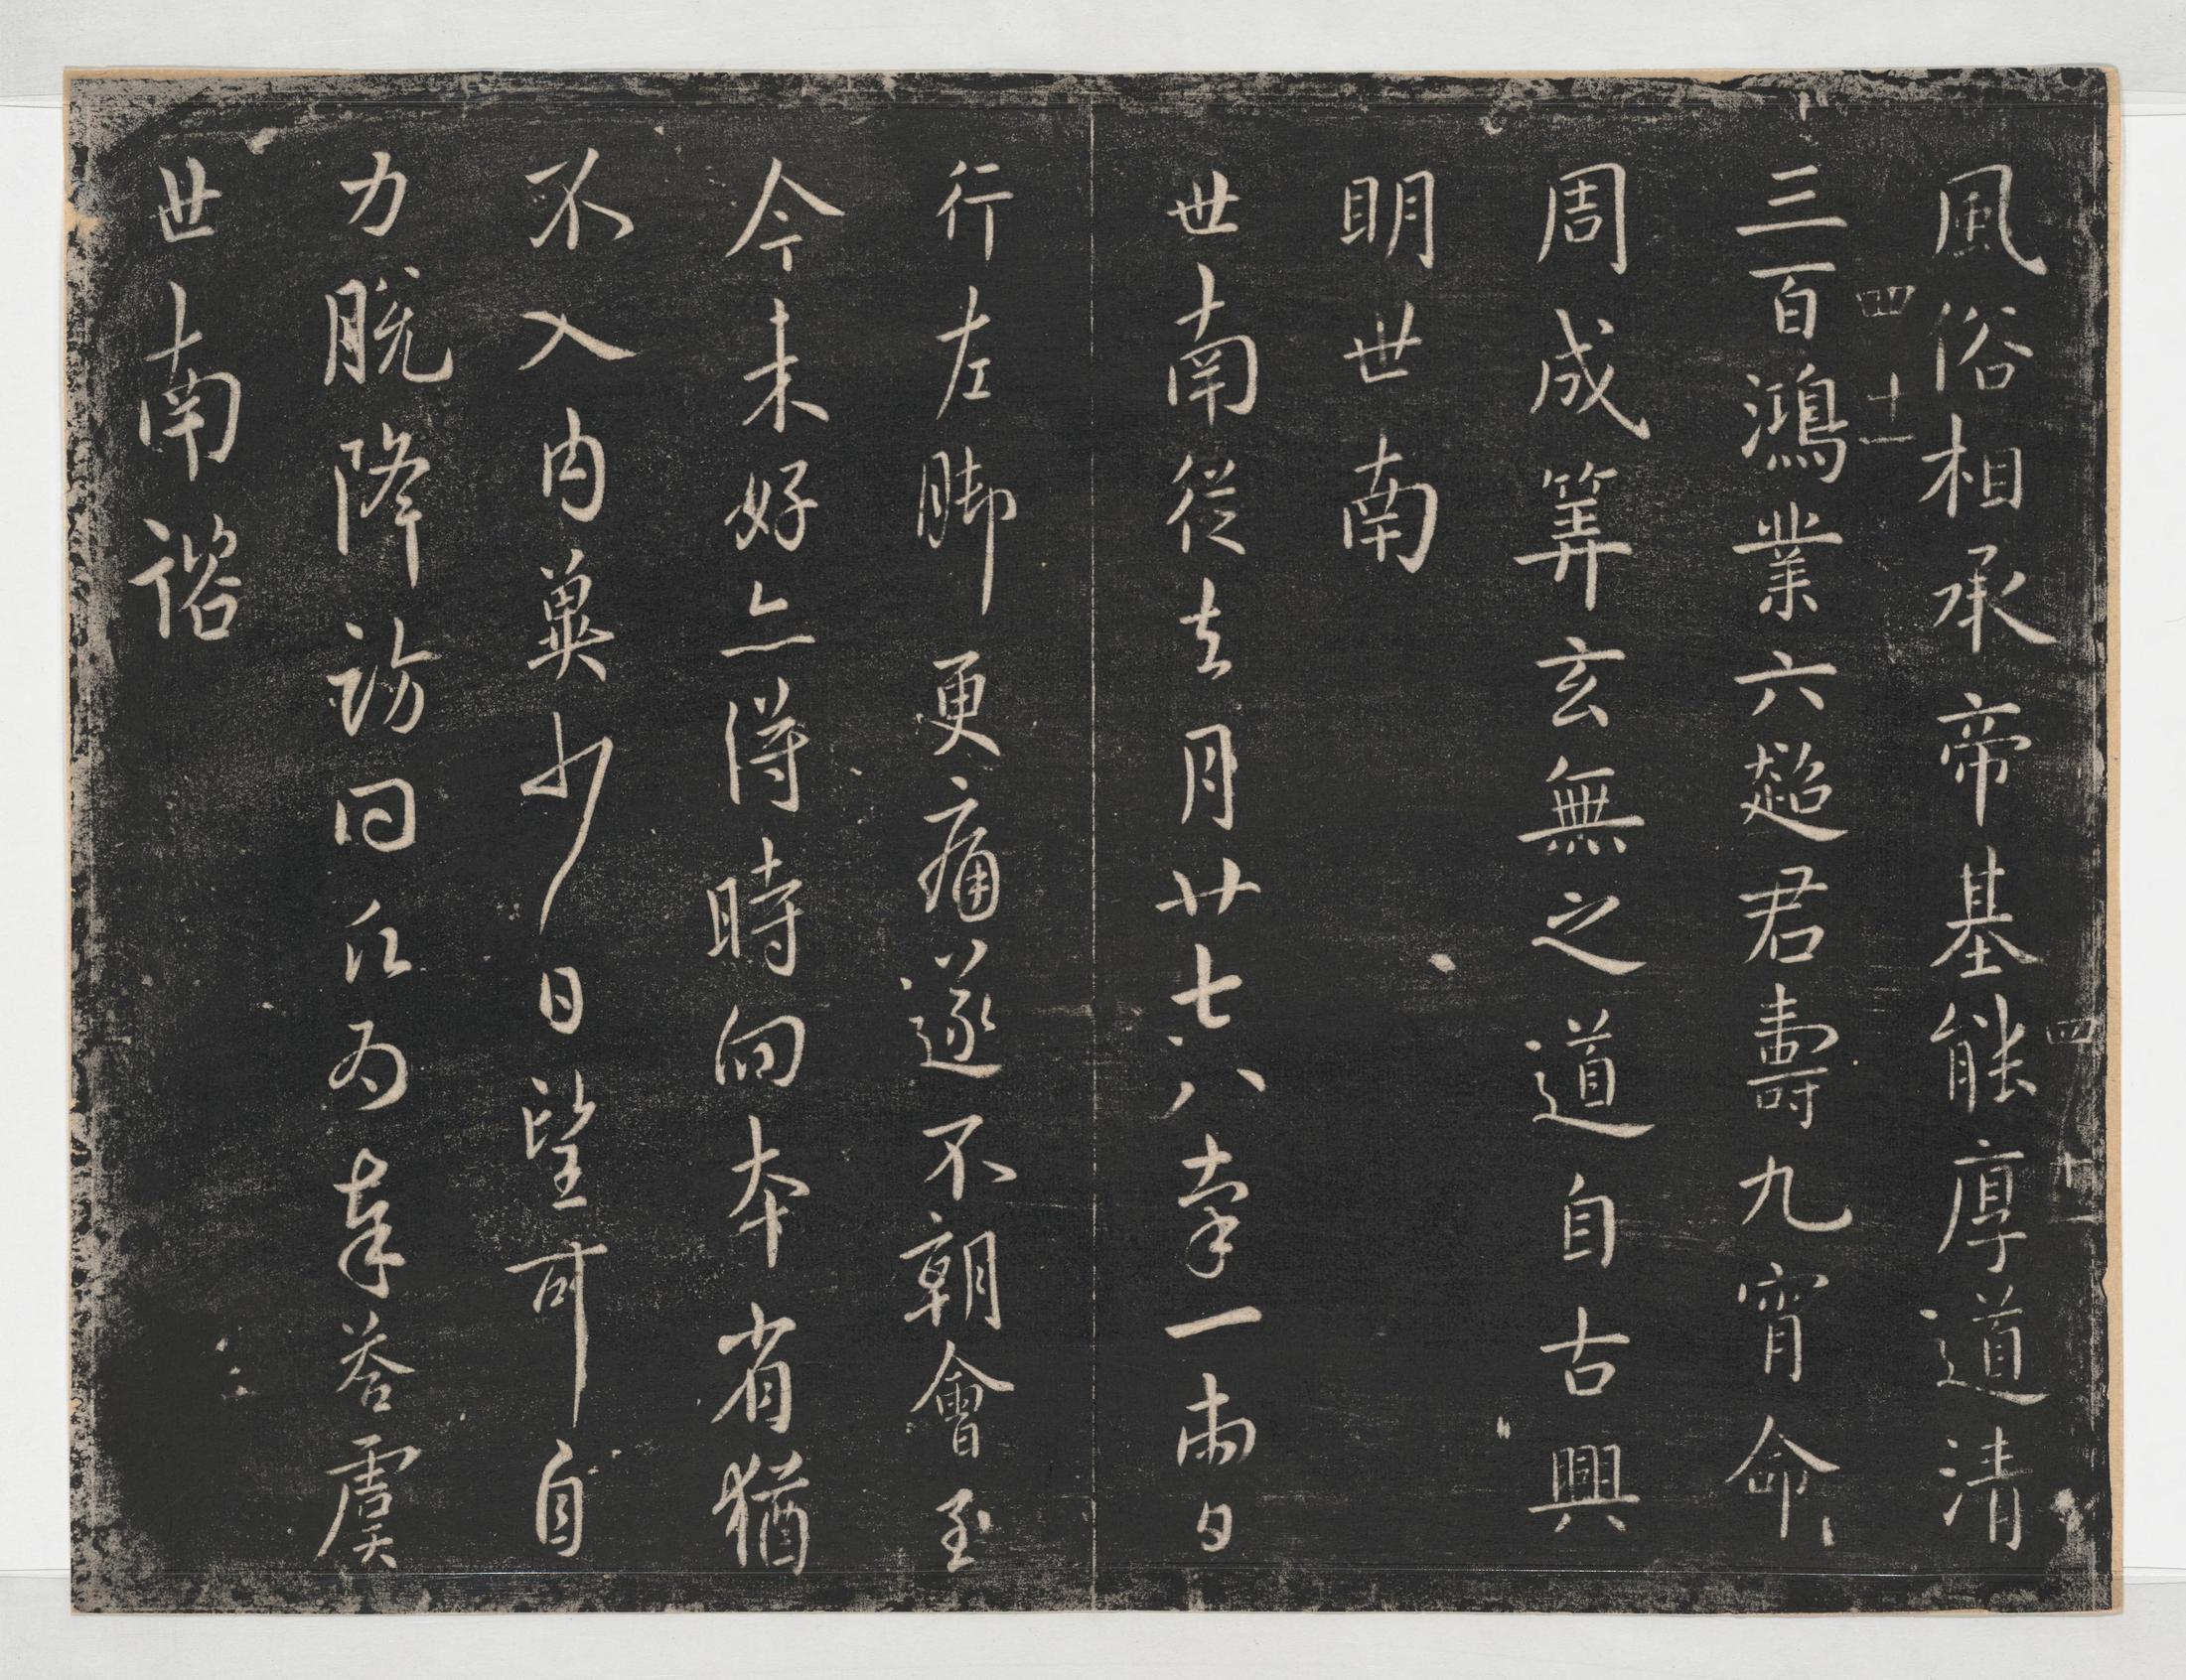 風俗相承帝基能厚道清
三百鴻業六超君壽九霄命
周成筭玄無之道自古興
明世南
世南從去月廿七八率一兩日
行左脚更痛遂不朝會至
今未好亦得時向本省猶
不入内冀少日望可自
力脱降訪問爪為奉荅虞
世南諮
四十一
四十一